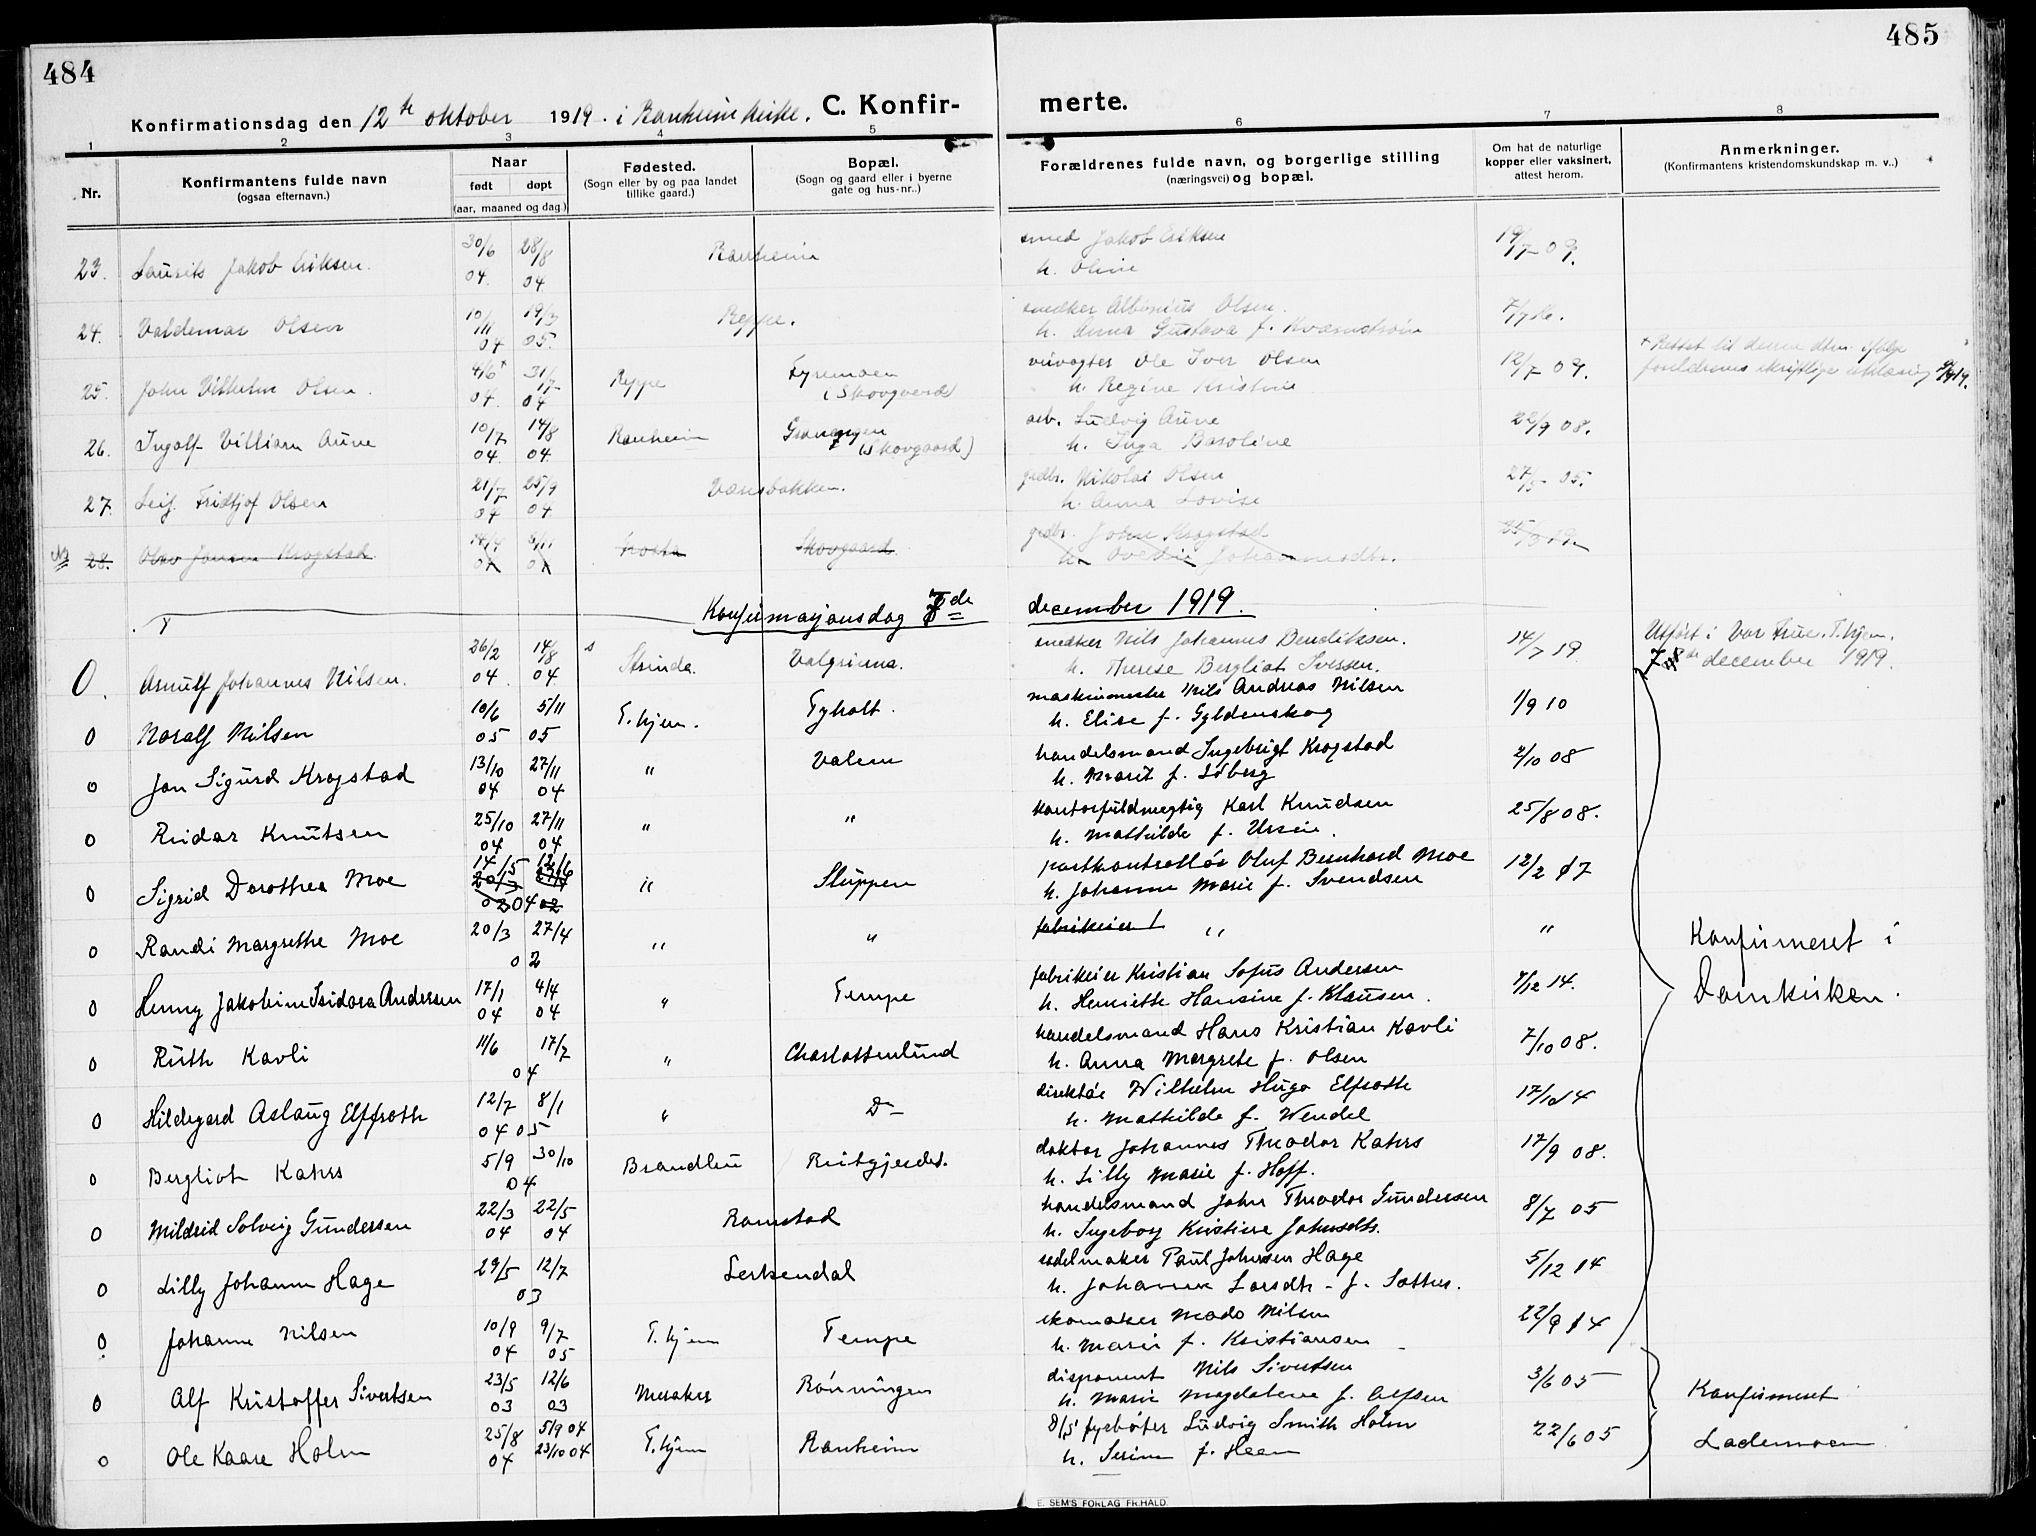 484
485
Konfirmationsdag den 12te oktober 1919. i Ranheim kirke. C. Konfir-
merte.
1 2 3 4 5 6 7 8
Nr.
Konfirmantens fulde navn
(ogsaa efternavn.)
Naar
født døpt
(aar, maaned og dag.)
Fødested.
(Sogn eller by og paa landet
tillike gaard.)
Bopæl.
(Sogn og gaard eller i byerne
gate og hus-nr..)
Forældrenes fulde navn, og borgerlige stilling
(næringsvei) og bopæl.
Om hat de naturlige
kopper eller vaksinert,
attest herom.
Anmerkninger.
(Konfirmantens kristendomskundskap m. v..)
23. Laurits Jakob Eriksen. 30/6 04 28/8 04 Ranheim smed Jakob Eriksen 19/7 09.
h. Oline
24. Valdemar Olsen 10/11 04 19/3 05. Reppe. snedker Albinius Olsen.
h. Anna Gustava f. Kvarnstrøm
25. John Vilhelm Olsen. 4/6+ 04. 31/7 04 Reppe Fyremoen veivogter Ole Iver Olsen 12/7 09. + Rettet til denne dtm. ifølge
(Skovgaard) h. Regine Kristine forældrenes skriftlige erklæring
26. Ingolf Villiam Aune 10/7 04. 14/8 04. Ranheim Granengen arb. Ludvig Aune 22/9 08.
(Skovgaard) h. Inga Baroline
27. Leif Fridtjof Olsen 21/7 04 25/9 04. Væresbakken. grdbr. Nikolai Olsen 27/5 05.
h. Anna Lovise
28. Olav Jonsen Krogstad Skovgaard. grdbr. John Krogstad
Konfirmasjonsdag 7de december 1919.
0. Arnulf Johannes Nilsen. 26/2 04. 14/8 04. Strinda. Valgrinna. snedker Nils Johannes Bendiksen. 14/7 19 Utført i Vor Frue, T.hjem.
h. Therese Bergliot Iversen. 7de december 1919.
0 Noralf Nilsen 10/6 05 5/11 05 T.hjem. Tyholt. maskinmester Nils Andreas Nilsen 1/9 10
h. Elise f. Gyldenskog
0 Jon Sigurd Krogstad 13/10 04 27/11 04 " Valene handelsmand Ingebrigt Krogstad 2/10 08
h. Marit f. Løberg
0 Reidar Knutsen 25/10 04 27/11 04 " " kontorfuldmegtig Karl Knudsen 25/8 08.
h. Mathilde f. Ursin.
0 Sigrid Dorothea Moe 14/5 12/6 04 " Sluppen postkontrollør Oluf Bernhard Moe 12/2 17
h. Johanne Marie f. Svendsen
0 Randi Margrethe Moe 20/3 27/4 02 " " fabrikeier " "
0 Henny Jakobine Isidora Andersen 17/1 04 4/4 04 " Tempe fabrikeier Kristian Sofus Andersen 7/12 14.
h. Henriette Hansine f. Klausen.
Konfirmeret i
Domkirken.
0 Ruth Kavli 11/6 17/7 04 " Charlottenlund handelsmand Hans Kristian Kavli 7/10 08.
h. Anna Margrete f. Olsen
0 Hildegard Aslaug Elffroth 12/7 04 8/1 05 " Do direktør Wilhelm Hugo Elfroth 17/10 14
h. Mathilde f. Wendel
0 Bergliot Kahrs 5/9 30/10 04 Brandbu Ritgjerdet. doktor Johannes Theodor Kahrs 17/9 08.
h. Lilly Marie f. Hoff.
0 Mildrid Solveig Gundersen 22/3 04 22/5 04 Ramstad handelsmand John Theodor Gundersen 8/7 05
h. Ingeborg Kristine Johnsdtr.
0 Lilly Johanne Hage 29/5 12/7 03 Lerkendal sadelmaker Paul Johnsen Hage 5/12 14
h. Johanna Larsdtr - f. Sæther.
0 Johanne Nilsen 10/9 04 9/7 05 T.hjem Tempe skomaker Mads Nilsen 22/9 14
h. Marie f. Kristiansen
0 Alf Kristoffer Sivertsen 23/5 03 12/6 03 Meraker Rønningen disponent Nils Sivertsen 3/6 05 Konfirmeret
h. Marie Magdalene f. Alfsen
0 Ole Kaare Holm 25/8 04 5/9 04 23/10 04 T.hjem Ranheim d/s fyrbøter Ludvig Smith Holm 22/6 05 Lademoen
h. Serine f. Heen
E. SEM'S FORLAG FR.HALD.